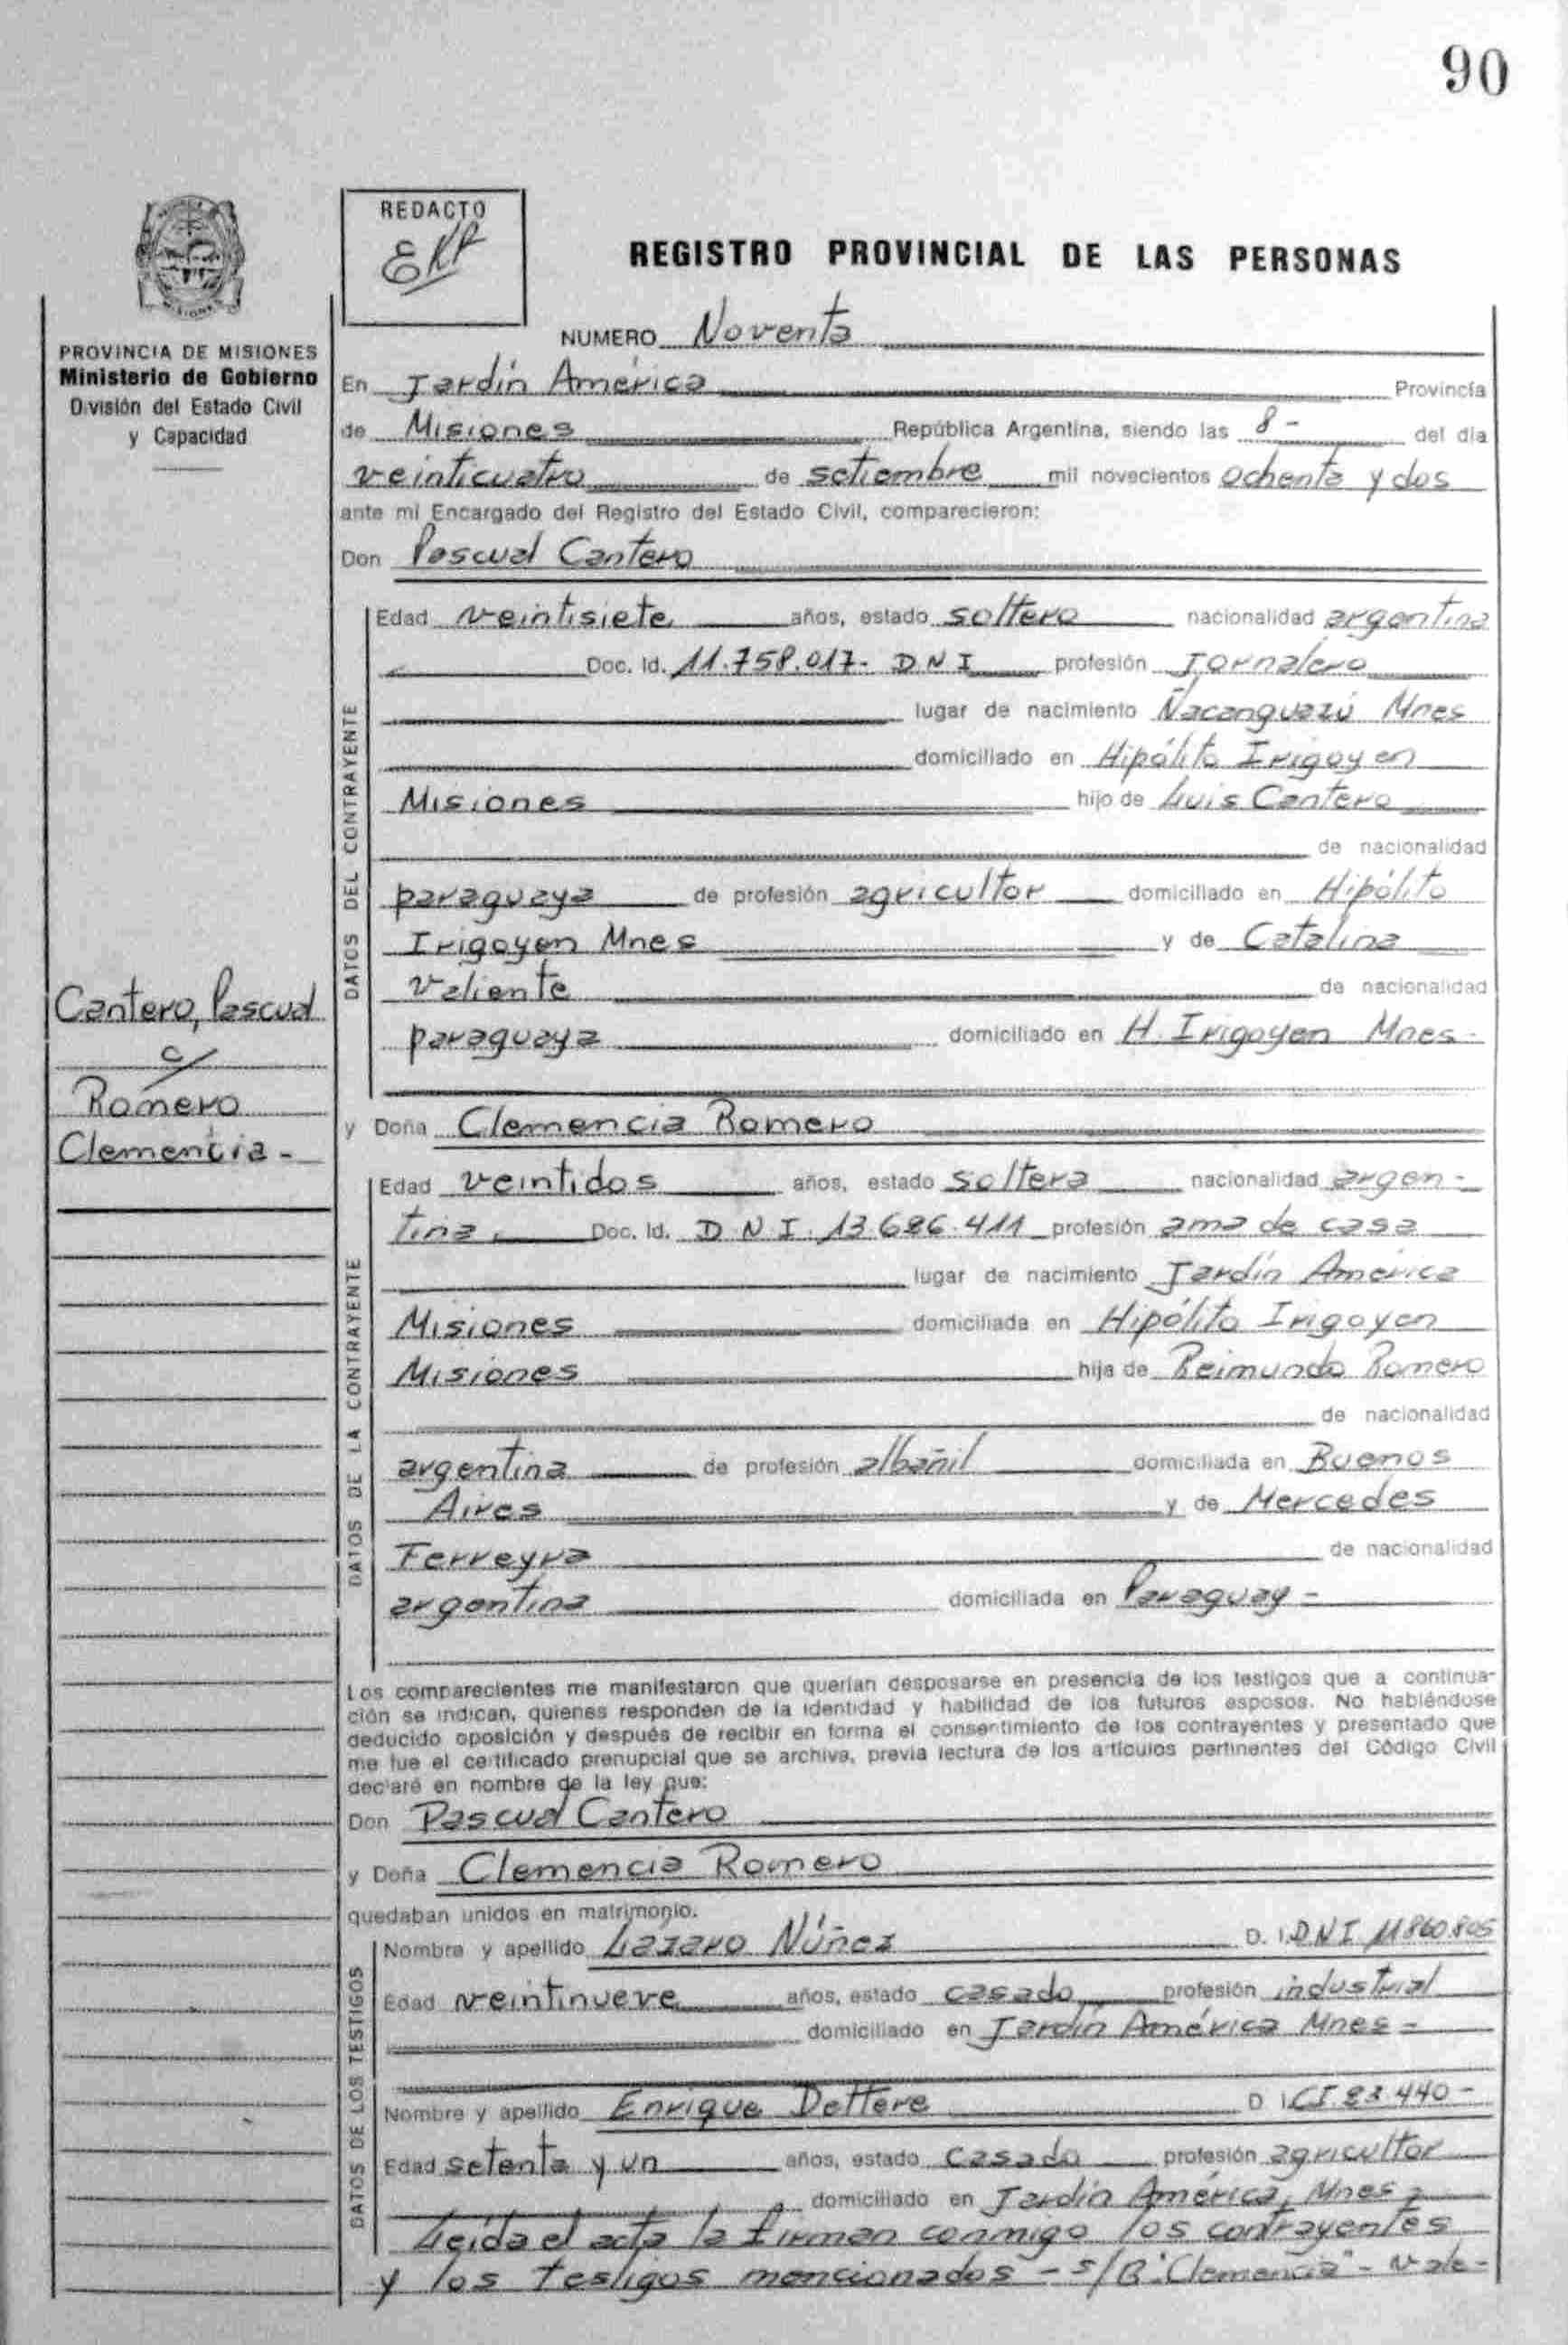 90
REDACTO
EKA
REGISTRO PROVINCIAL DE LAS PERSONAS
PROVINCIA DE MISIONES
Ministerio de Gobierno
División del Estado Civil
y Capacidad
NUMERO Noventa
En Jardín América Provincia
de Misiones República Argentina, siendo las 8- del día
veinticuatro de setiembre mil novecientos ochenta y dos
ante mi Encargado del Registro del Estado Civil, comparecieron:
Don Pascual Cantero
DATOS DEL CONTRAYENTE
Edad veintisiete años, estado soltero nacionalidad argentina
Doc. Id. 11.758.017- DNI profesión Jornalero
lugar de nacimiento Ñacanguazú Mnes
domiciliado en Hipólito Irigoyen
Misiones hijo de Luis Cantero
de nacionalidad
paraguaya de profesión agricultor domiciliado en Hipólito
Irigoyen Mnes y de Catalina
Valiente de nacionalidad
paraguaya domiciliado en H. Irigoyen Mnes-
Cantero, Pascual
c/
Romero
Clemencia-
y Doña Clemencia Romero
DATOS DE LA CONTRAYENTE
Edad veintidos años, estado soltera nacionalidad argen-
tina. Doc. Id. DNI. 13.686.411 profesión ama de casa
lugar de nacimiento Jardín América
Misiones domiciliada en Hipólito Irigoyen
Misiones hija de Reimundo Romero
de nacionalidad
argentina de profesión albañil domiciliada en Buenos
Aires y de Mercedes
Ferreyra de nacionalidad
argentina domiciliada en Paraguay-
Los comparecientes me manifestaron que querían desposarse en presencia de los testigos que a continua-
ción se indican, quienes responden de la identidad y habilidad de los futuros esposos. No habiéndose
deducido oposición y después de recibir en forma el consentimiento de los contrayentes y presentado que
me fue el certificado prenupcial que se archiva, previa lectura de los artículos pertinentes del Código Civil
declaré en nombre de la ley que:
Don Pascual Cantero
y Doña Clemencia Romero
quedaban unidos en matrimonio.
DATOS DE LOS TESTIGOS
Nombre y apellido Lazaro Núñez D. I. DNI 11860.805
Edad veintinueve años, estado casado profesión industrial
domiciliado en Jardín América Mnes-
Nombre y apellido Enrique Dettere D I CI. 83.440-
Edad setenta y un años, estado casado profesión agricultor
domiciliado en Jardín América, Mnes-
Leída el acta la firman conmigo los contrayentes
y los testigos mencionados - s/B: "Clemencia" - Vale-